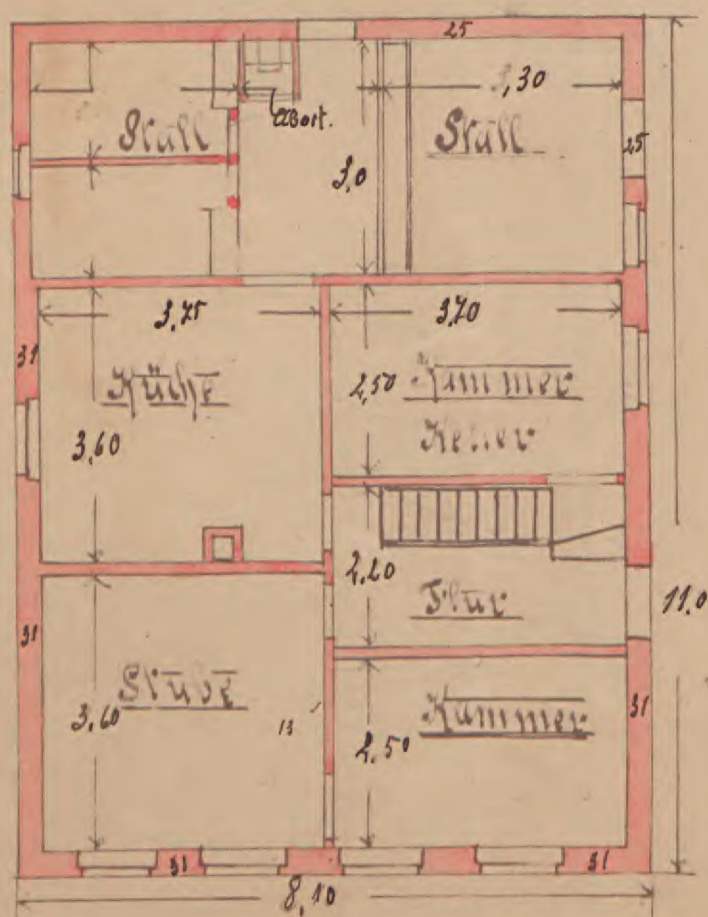 25
3,30
Stall
Abort.
Stall
25
3,0
3,75
3,70
31
Küche
2,50
Kammer
Keller
3,60
2,20
Flur
11,0
31
Stube
3,60
13
2,50
Kammer
31
31
31
8,10